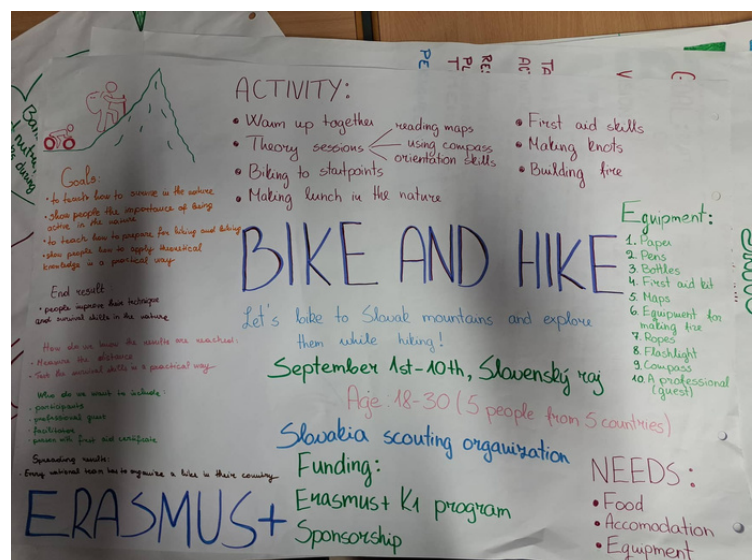 ACTIVITY:
• Warm up together
• Theory sessions
reading maps
using compass
orientation skills
• Biking to startpoints
• Making lunch in the nature
• First aid skills
• Making knots
• Building fire
Goals:
• to teach how to survive in the nature
• show people the importance of being
active in the nature
• to teach how to prepare for hiking and biking
• show people how to apply theoretical
knowledge in a practical way
End result
• people improve their technique
and survival skills in the nature
How do we know the results are reached:
- Measure the distance
- Test the survival skills in a practical way
Who do we want to include:
- participants
- professional guest
- facilitators
- person with first aid certificate
Spreading results:
- Every national team has to organize a hike in their country
BIKE AND HIKE
Let's bike to Slovak mountains and explore
them while hiking!
September 1st-10th, Slovenský raj
Age: 18-30 (5 people from 5 countries)
Slovakia scouting organization
Funding:
Erasmus+ K1 program
Sponsorship
ERASMUS+
Equipment:
1. Paper
2. Pens
3. Bottles
4. First aid kit
5. Maps
6. Equipment for
making fire
7. Ropes
8. Flashlight
9. Compass
10. A professional
(guest)
NEEDS:
• Food
• Accomodation
• Equipment